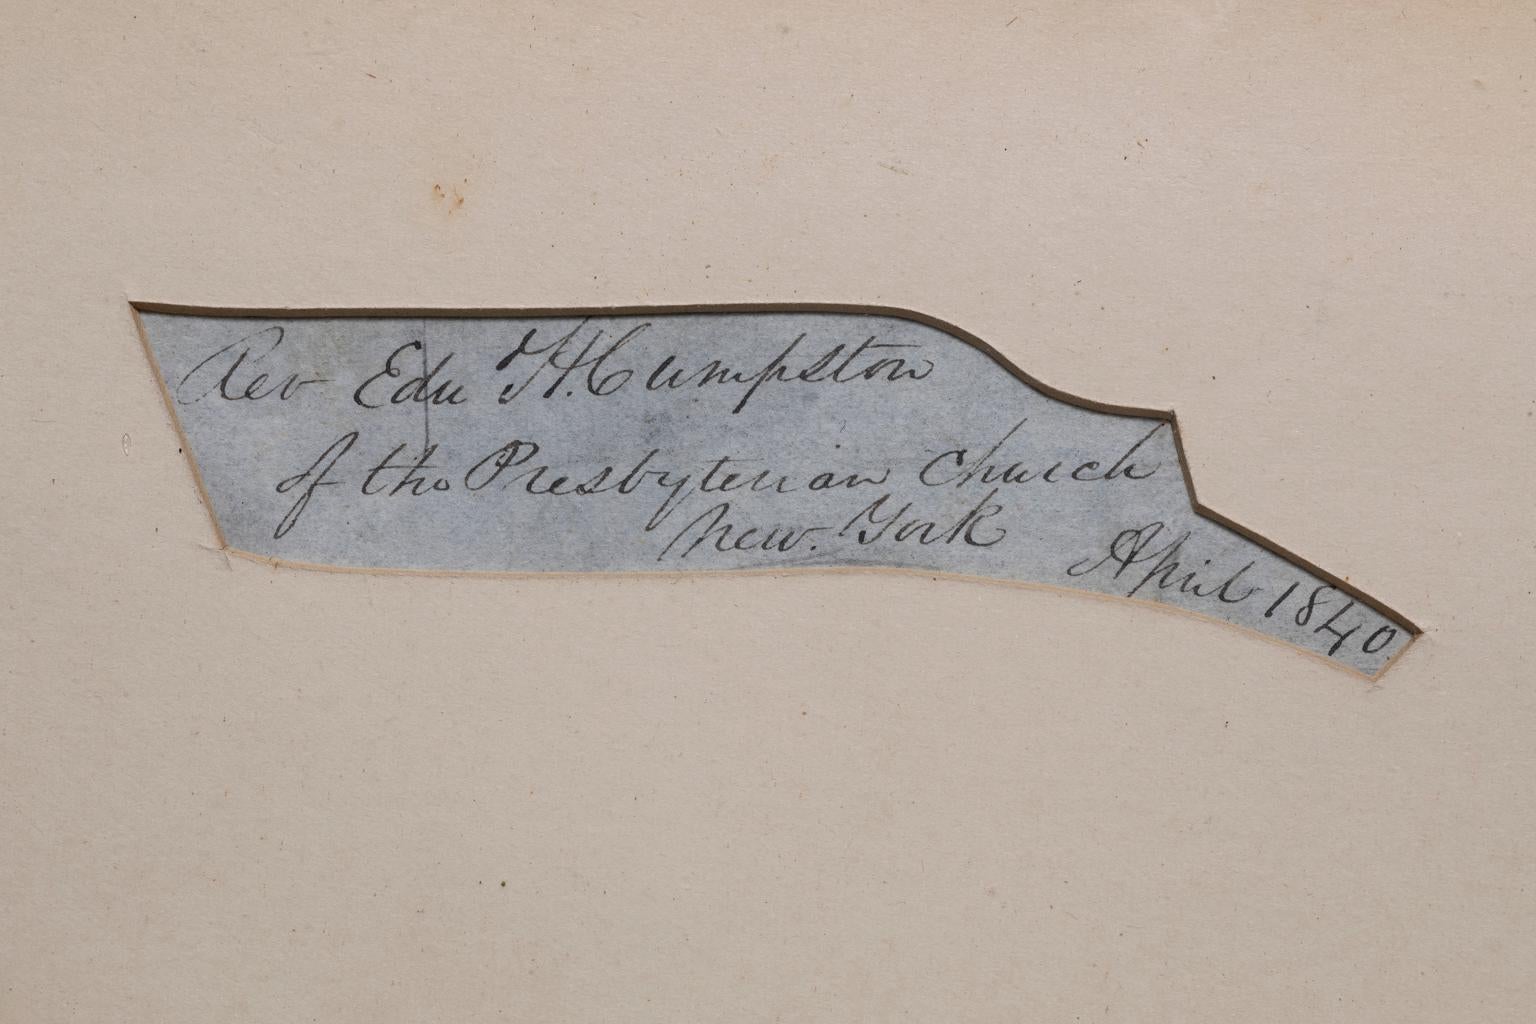 Rev Edw H. Cumpston
of the Presbyterian Church
New. York
April 1840.